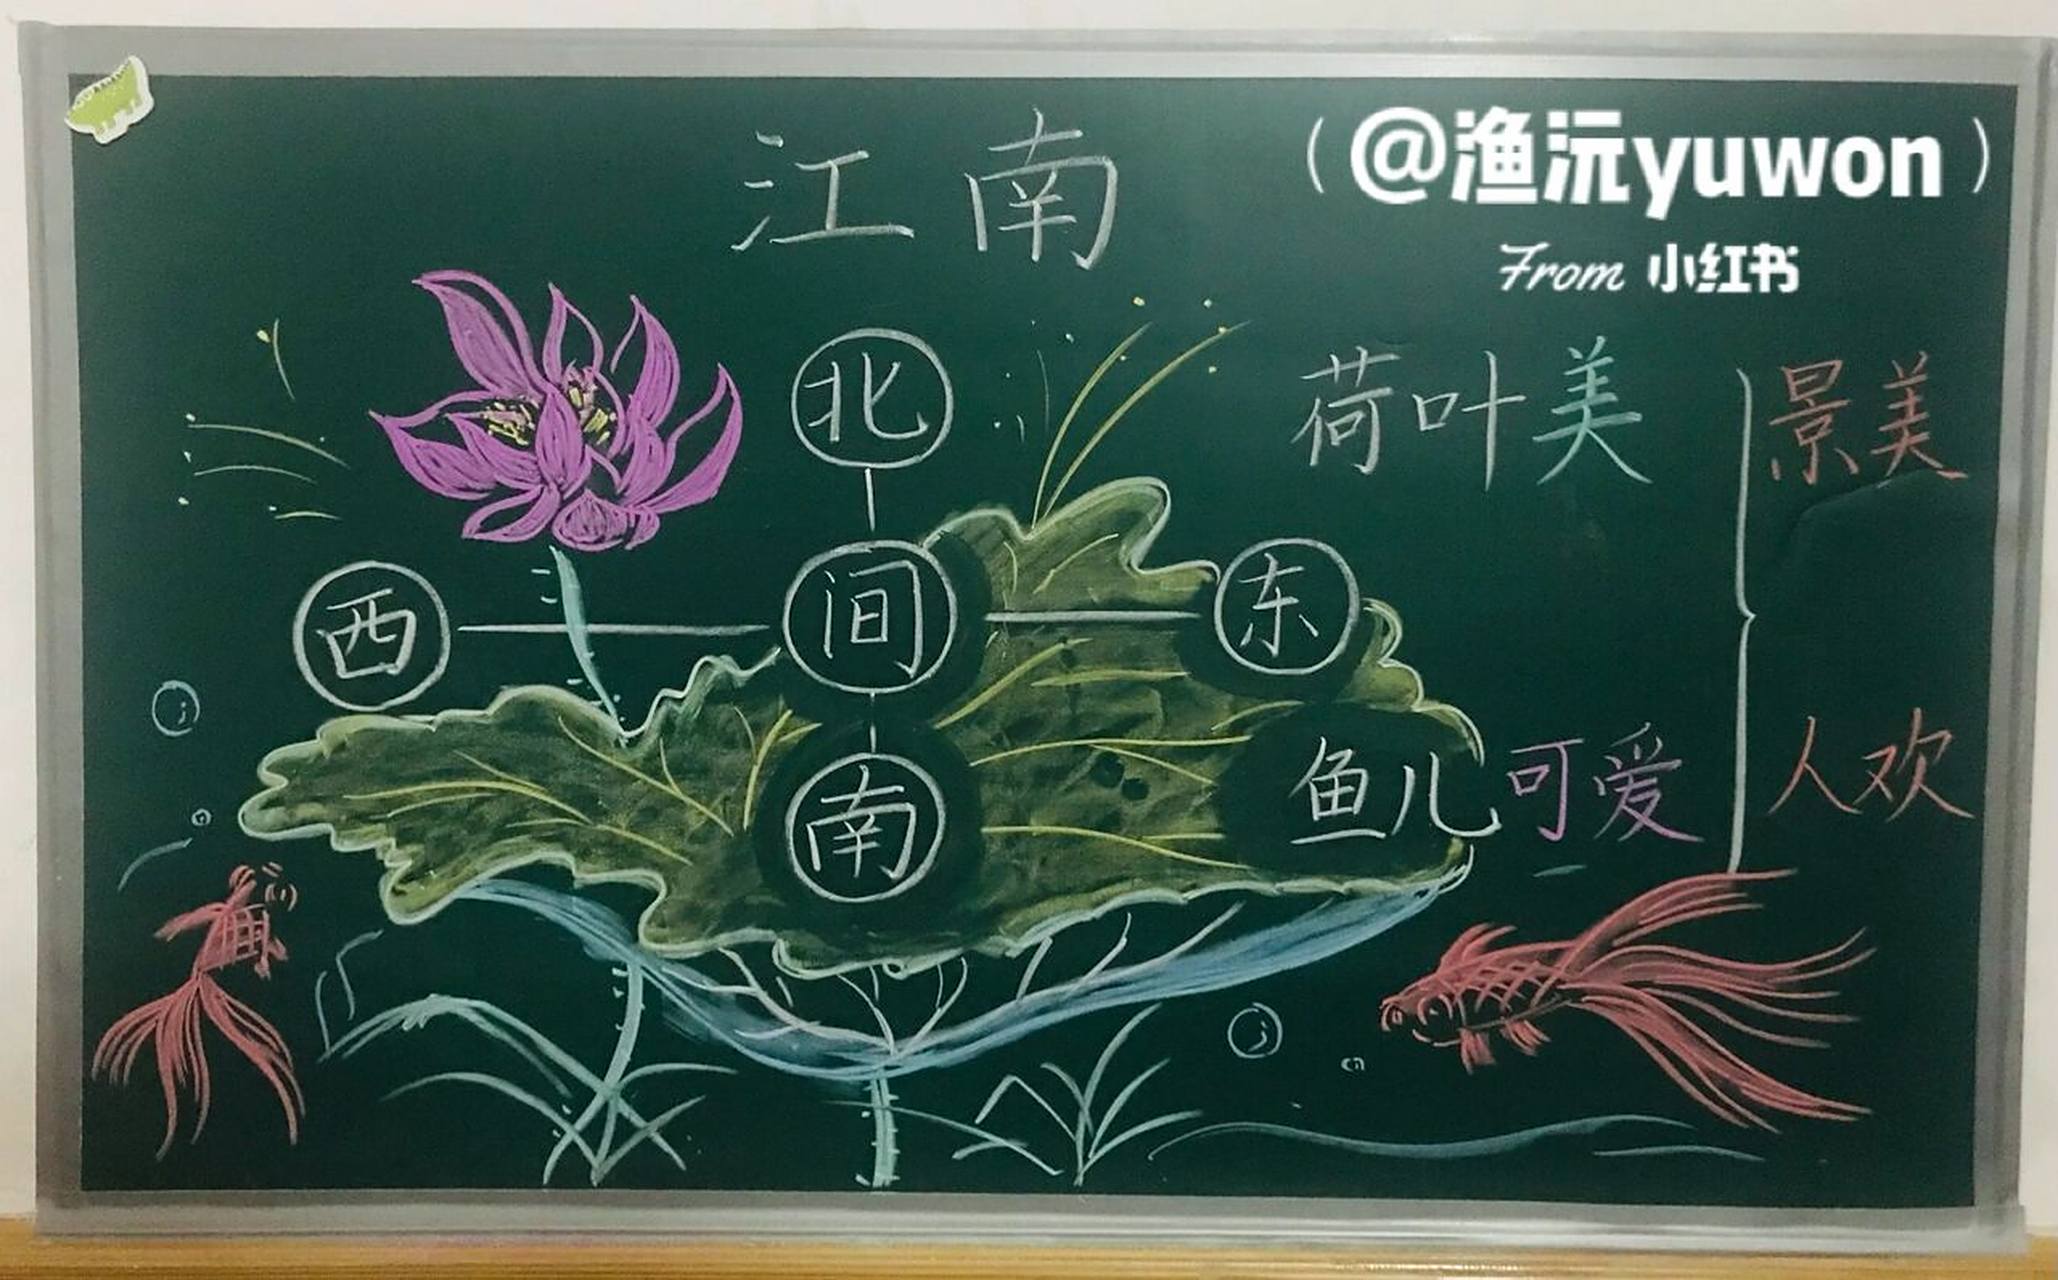 江南
(@渔沅yuwon)
From 小红书
北
荷叶美
景美
西
间
东
南
鱼儿可爱
人欢